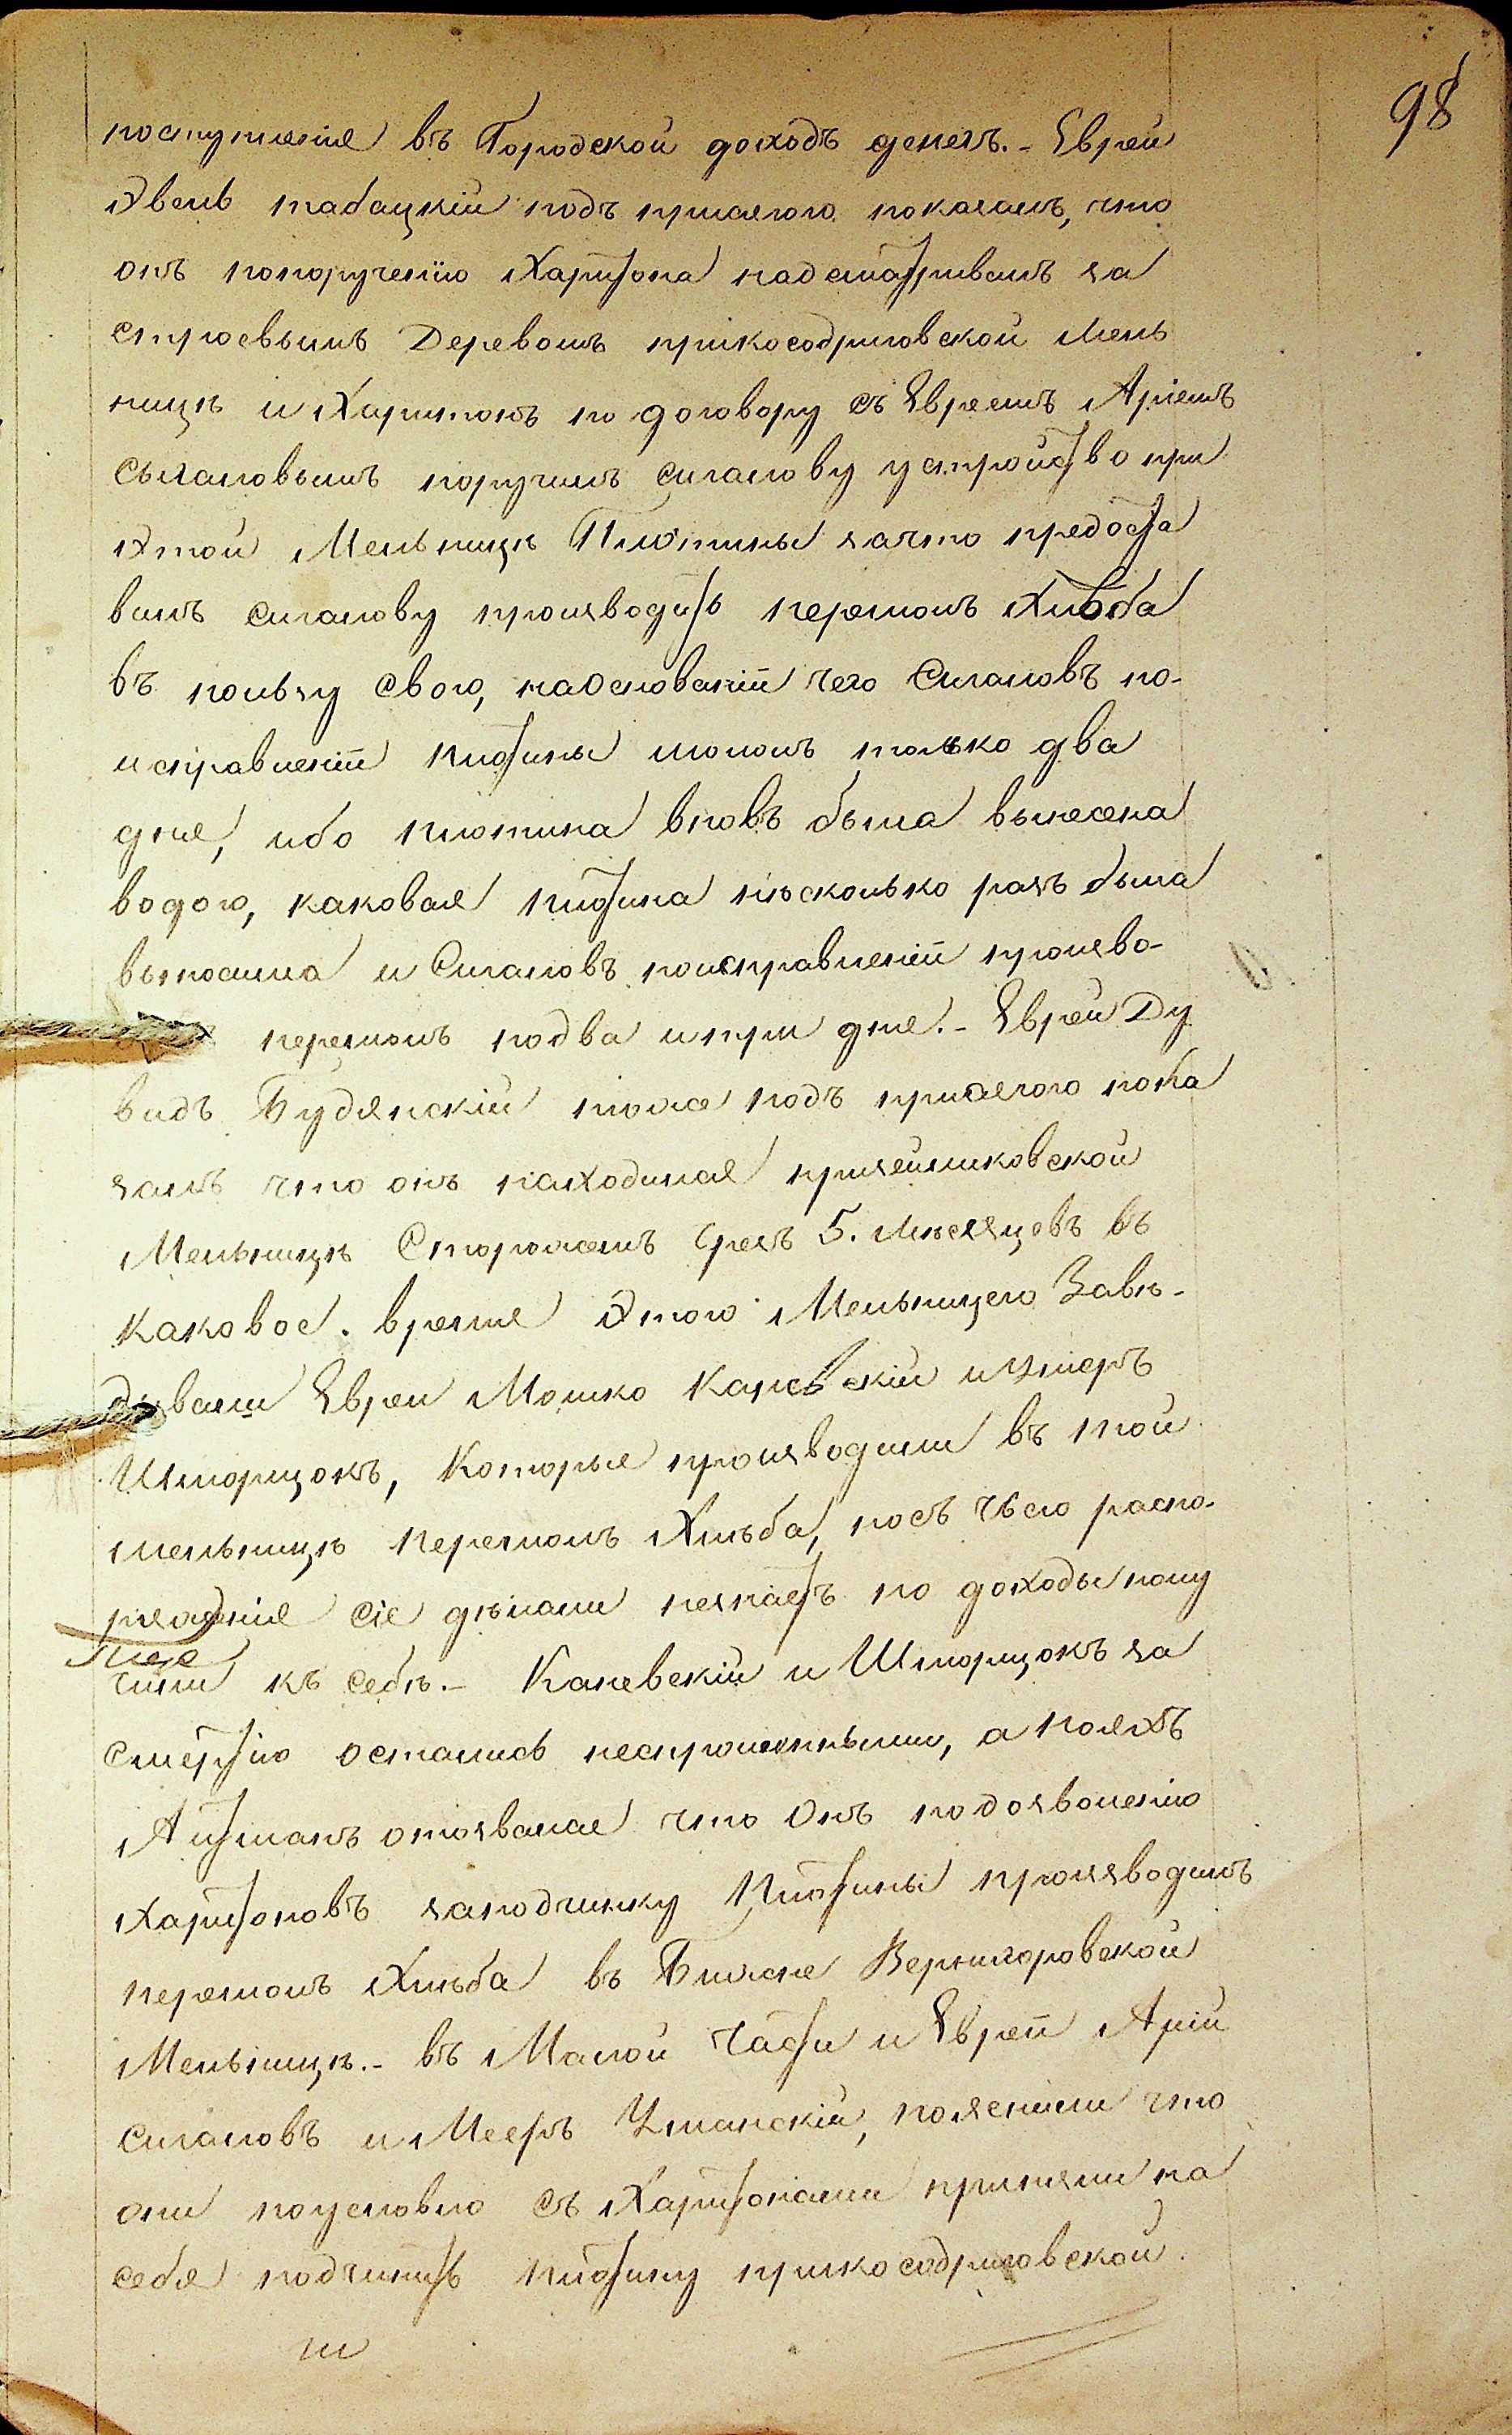 98
поступленія въ Городской доходъ денегъ. - Еврей
Эвель табацкій подъ присягою показалъ, что
онъ попорученію Харитона надсматривалъ за
строевымъ Деревомъ прикосодриговской мель
ницѣ и Харитонъ по договору съ Евреемъ Аріемъ
Сыгаловымъ поручилъ Сигалову устройство при
этой Мельницѣ Плотины зачто предоста
вилъ Сигалову производить перемолъ Хлѣба
въ пользу свою, наоснованіи чего Сигаловъ по-
исправленіи плотины мололъ только два
дня, ибо плотина вновь была вынесена
водою, каковая плотина нѣсколько разъ была
выносима и Сигаловъ поисправленіи произво-
перемолъ подва итри дня. - Еврей Ду
видъ Будянскій тоже подъ присягою пока
залъ что онъ находился
Мельницѣ Сторожемъ чрезъ 5. мѣсяцевъ въ
каковое. время этою Мельницею Завѣ-
дывали Евреи Мошко Каневскій иУшеръ
Шторщокъ, Которые производили въ той
мельницѣ перемолъ Хлѣба,носъ чьего распо-
ряженія сіе дѣлали незнаетъ но доходы полу
чали къ себѣ. - Каневскій и Шторщокъ за
смертію остались неспрошенными, а полякъ
Литманъ отозвался что Онъ подозволенію
Харитоновъ заподчинку Плотины производилъ
перемолъ Хлѣба въ Ближне Вернигоровской
Мельницѣ. - въ Малой Части и Евреи Арій
Сигаловъ и Мееръ Уманскій, пояснили что
они поусловію съ Харитонами приняли на
себя подчинить плотину прикосодриговской
м